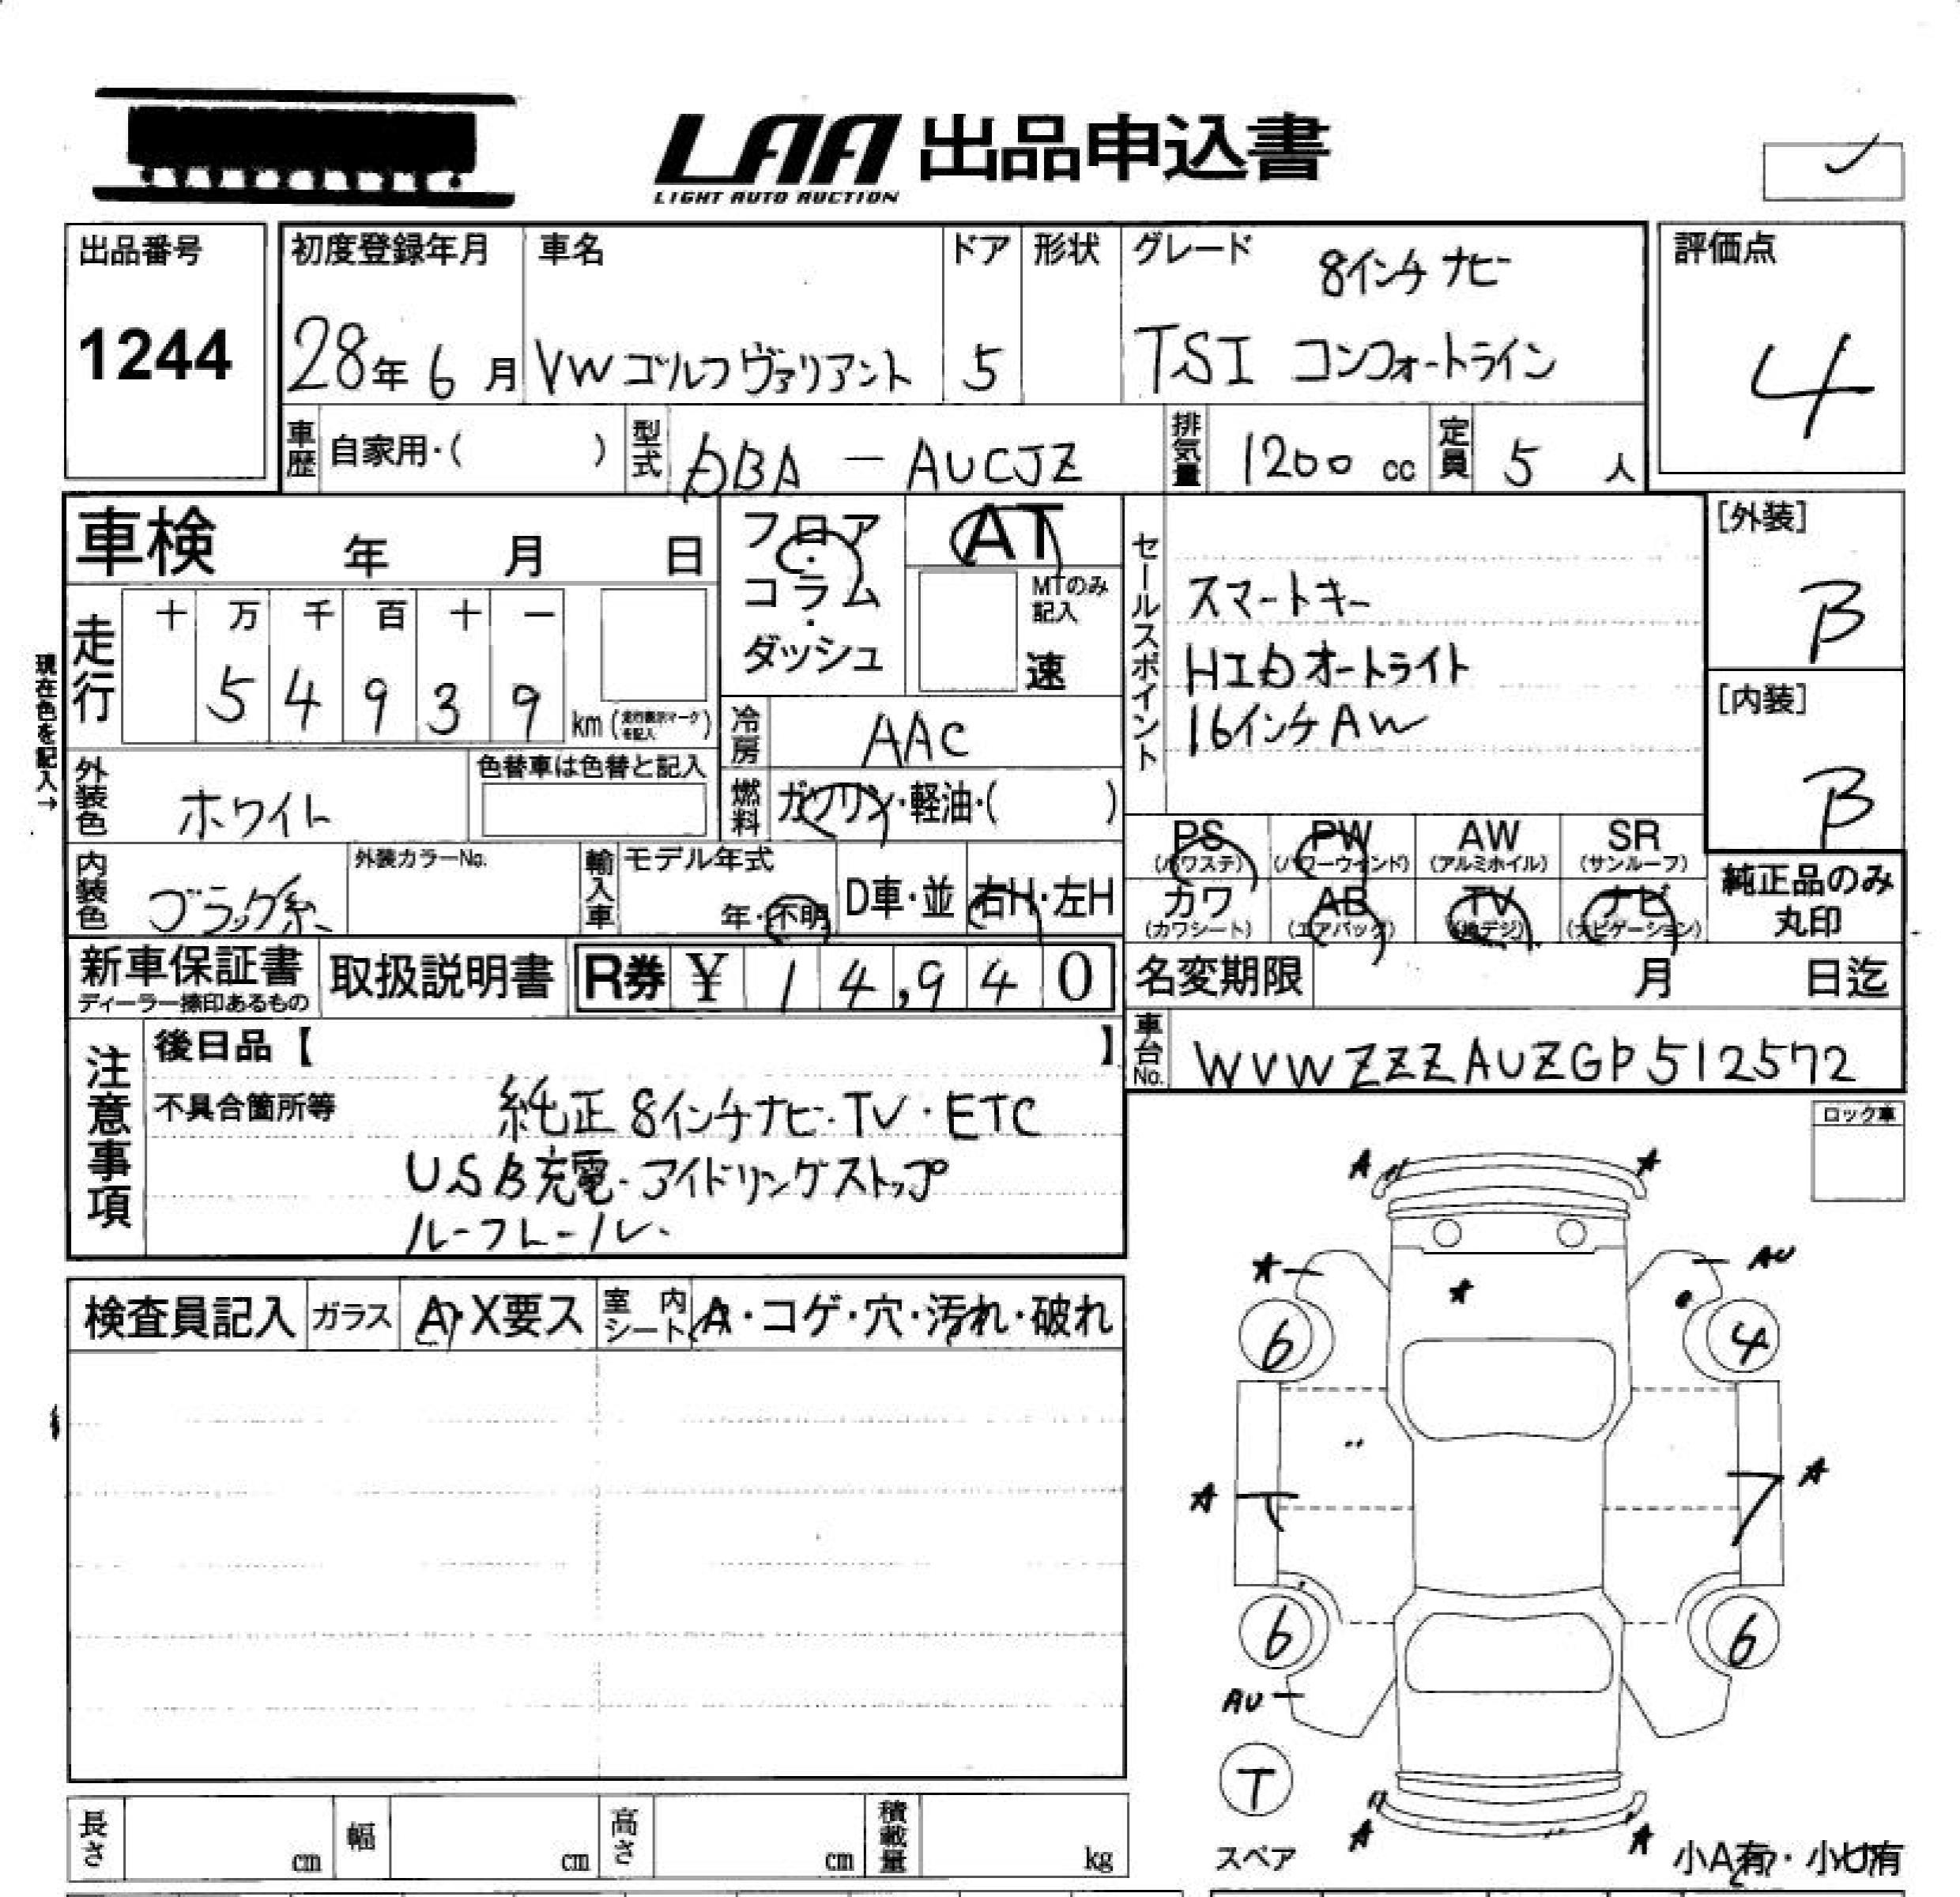 LAA 出品申込書
LIGHT AUTO AUCTION
出品番号
1244
初度登録年月
28年6月
車名
VWゴルフヴァリアント
ドア
5
形状
グレード
8インチナビ
TSI コンフォートライン
評価点
4
車歴
自家用・( )
型式
DBA - AUCJZ
排気量
1200 cc
定員
5 人
車検 年 月 日
フロア・コラム・ダッシュ
AT
MTのみ記入
速
セールスポイント
スマートキー
HIDオートライト
16インチAW
[外装]
B
[内装]
B
現在色を記入→
走行
十 万 千 百 十 一
5 4 9 3 9 km (走行表示マークを記入)
冷房
AAC
外装色
ホワイト
色替車は色替と記入
燃料
ガソリン・軽油・( )
PS (パワステ)
PW (パワーウィンド)
AW (アルミホイル)
SR (サンルーフ)
内装色
ブラック系
外装カラーNo.
輸入車
モデル年式
年・不明
D車・並
右H・左H
カワ (カワシート)
AB (エアバッグ)
TV (地デジ)
ナビ (ナビゲーション)
純正品のみ丸印
新車保証書
ディーラー捺印あるもの
取扱説明書
R券 ¥ 14,940
名変期限 月 日迄
車台No.
WVWZZZAUZGP512572
注意事項
後日品【 】
不具合箇所等
純正8インチナビ・TV・ETC
USB充電・アイドリングストップ
ルーフレール・
ロック車
検査員記入
ガラス
A・X要ス
室内シート
A・コゲ・穴・汚れ・破れ
A
A
A
AU
A
6
4
A
A
6
6
AU
T
スペア
A
A
小A有・小U有
長さ cm
幅 cm
高さ cm
積載量 kg